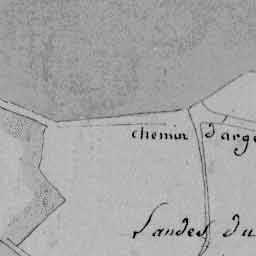 chemin d'arge
Landes du